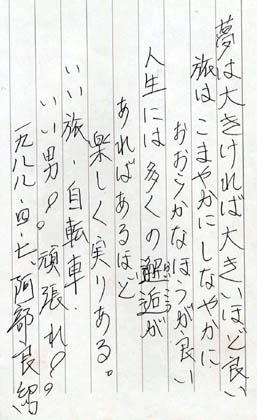 夢は大きければ大きいほど良い
旅はこまやかにしなやかに
おおらかなほうが良い
人生には多くの邂逅が
あればあるほど
楽しく実りある。
いい旅・自転車・
いい男？頑張れ？。
一九八八・四・七 阿部良